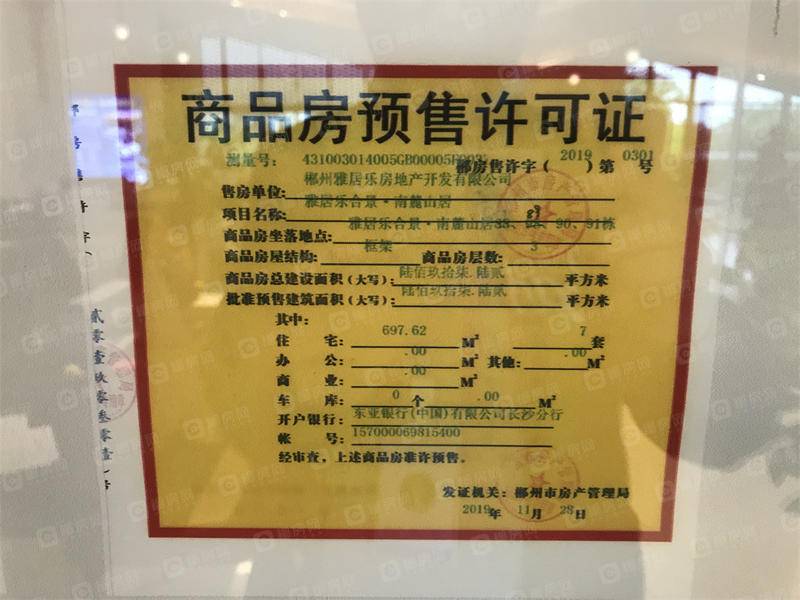 商品房预售许可证
测量号: 431003014005GB00005F003
郴房售许字(2019)第0301号
售房单位: 郴州雅居乐房地产开发有限公司
项目名称: 雅居乐合景·南麓山居
商品房坐落地点: 雅居乐合景·南麓山居88、89、90、91栋
商品房屋结构: 框架 商品房层数: 3
商品房总建设面积(大写): 陆佰玖拾柒.陆贰 平方米
批准预售建筑面积(大写): 陆佰玖拾柒.陆贰 平方米
其中:
住宅: 697.62 M² 7 套
办公: .00 M² 其他: .00 M²
商业: .00 M²
车库: 0 个 .00 M²
开户银行: 东亚银行(中国)有限公司长沙分行
帐号: 157000069815400
经审查,上述商品房准许预售。
发证机关: 郴州市房产管理局
2019年11月28日
郴房售许字(
贰零壹玖零叁零壹)号